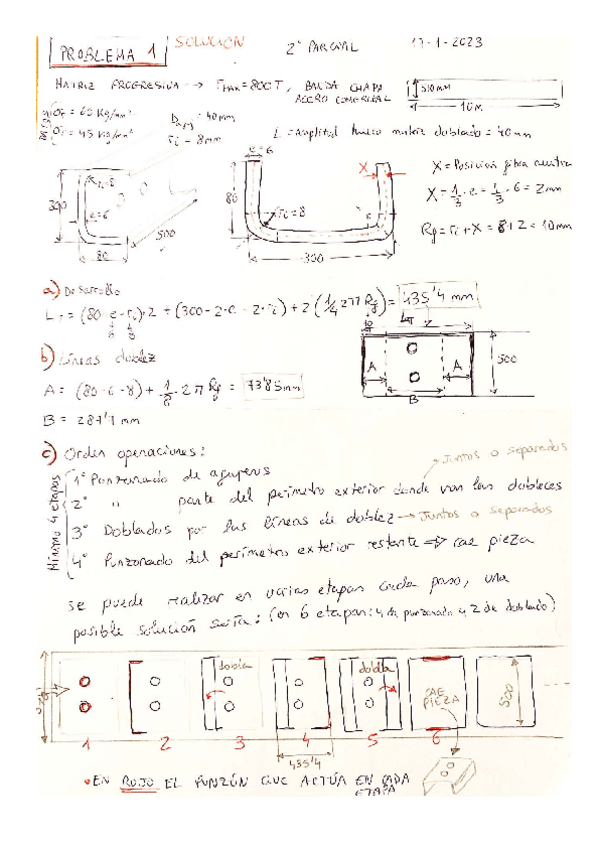 PROBLEMA 1 SOLUCIÓN 2º PARCIAL 17-1-2023
MATRIZ PROGRESIVA → Fmax = 800 T, BANDA CHAPA
ACERO COMERCIAL
510mm
10m
= 65 Kg/mm²
= 45 Kg/mm²
= 40mm
ri = 8mm
L = Amplitud hueco matriz doblado = 40mm
e=6
X
X = Posición fibra neutra
X = 1/3 · e = 1/3 · 6 = 2mm
Rf = ri + X = 8+2 = 10mm
300
e=6
80
500
80
ri=8
300
a) Desarrollo
LT = (80-e-ri)·2 + (300-2·e-2·ri) + 2(1/4 2π Rf) = 435'4 mm
6 8
b) Líneas doblez
A = (80-6-8) + 1/8 · 2π Rf = 73'85mm
B = 287'7 mm
LT
A A
B
500
c) Orden operaciones:
Mínimo 4 etapas
1º Punzonado de agujeros
Juntos o separados
2º " parte del perímetro exterior donde van los dobleces
3º Doblados por las líneas de doblez → Juntos o separados
4º Punzonado del perímetro exterior restante ⇒ cae pieza
se puede realizar en varias etapas cada paso, una
posible solución sería: (en 6 etapas: 4 de punzonado y 2 de doblado)
dobla dobla
CAE
PIEZA
500
1 2 3 4 5 6
435'4
• EN ROJO EL PUNZÓN QUE ACTÚA EN CADA
ETAPA